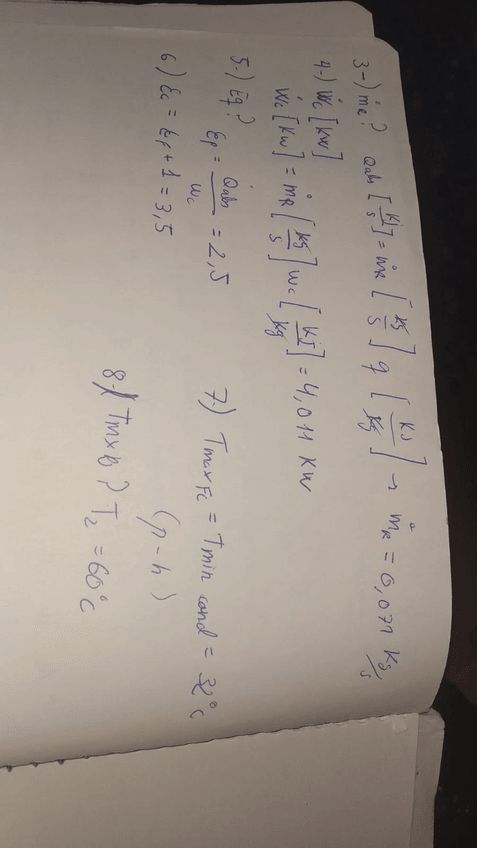 3-) ṁR? Qabs [KJ/s] = ṁR [Kg/s] q [KJ/Kg] → ṁR = 0,071 Kg/s
4-) Ẇc [KW]
Ẇc [KW] = ṁR [Kg/s] wc [KJ/Kg] = 4,011 KW
5-) Eq?
Ef = Qabs/Wc = 2,5
6) Ec = Ef + 1 = 3,5
7.) Tmax Fc = Tmin cond = 32°C
(p-h)
8-) Tmxb? T2 = 60°C